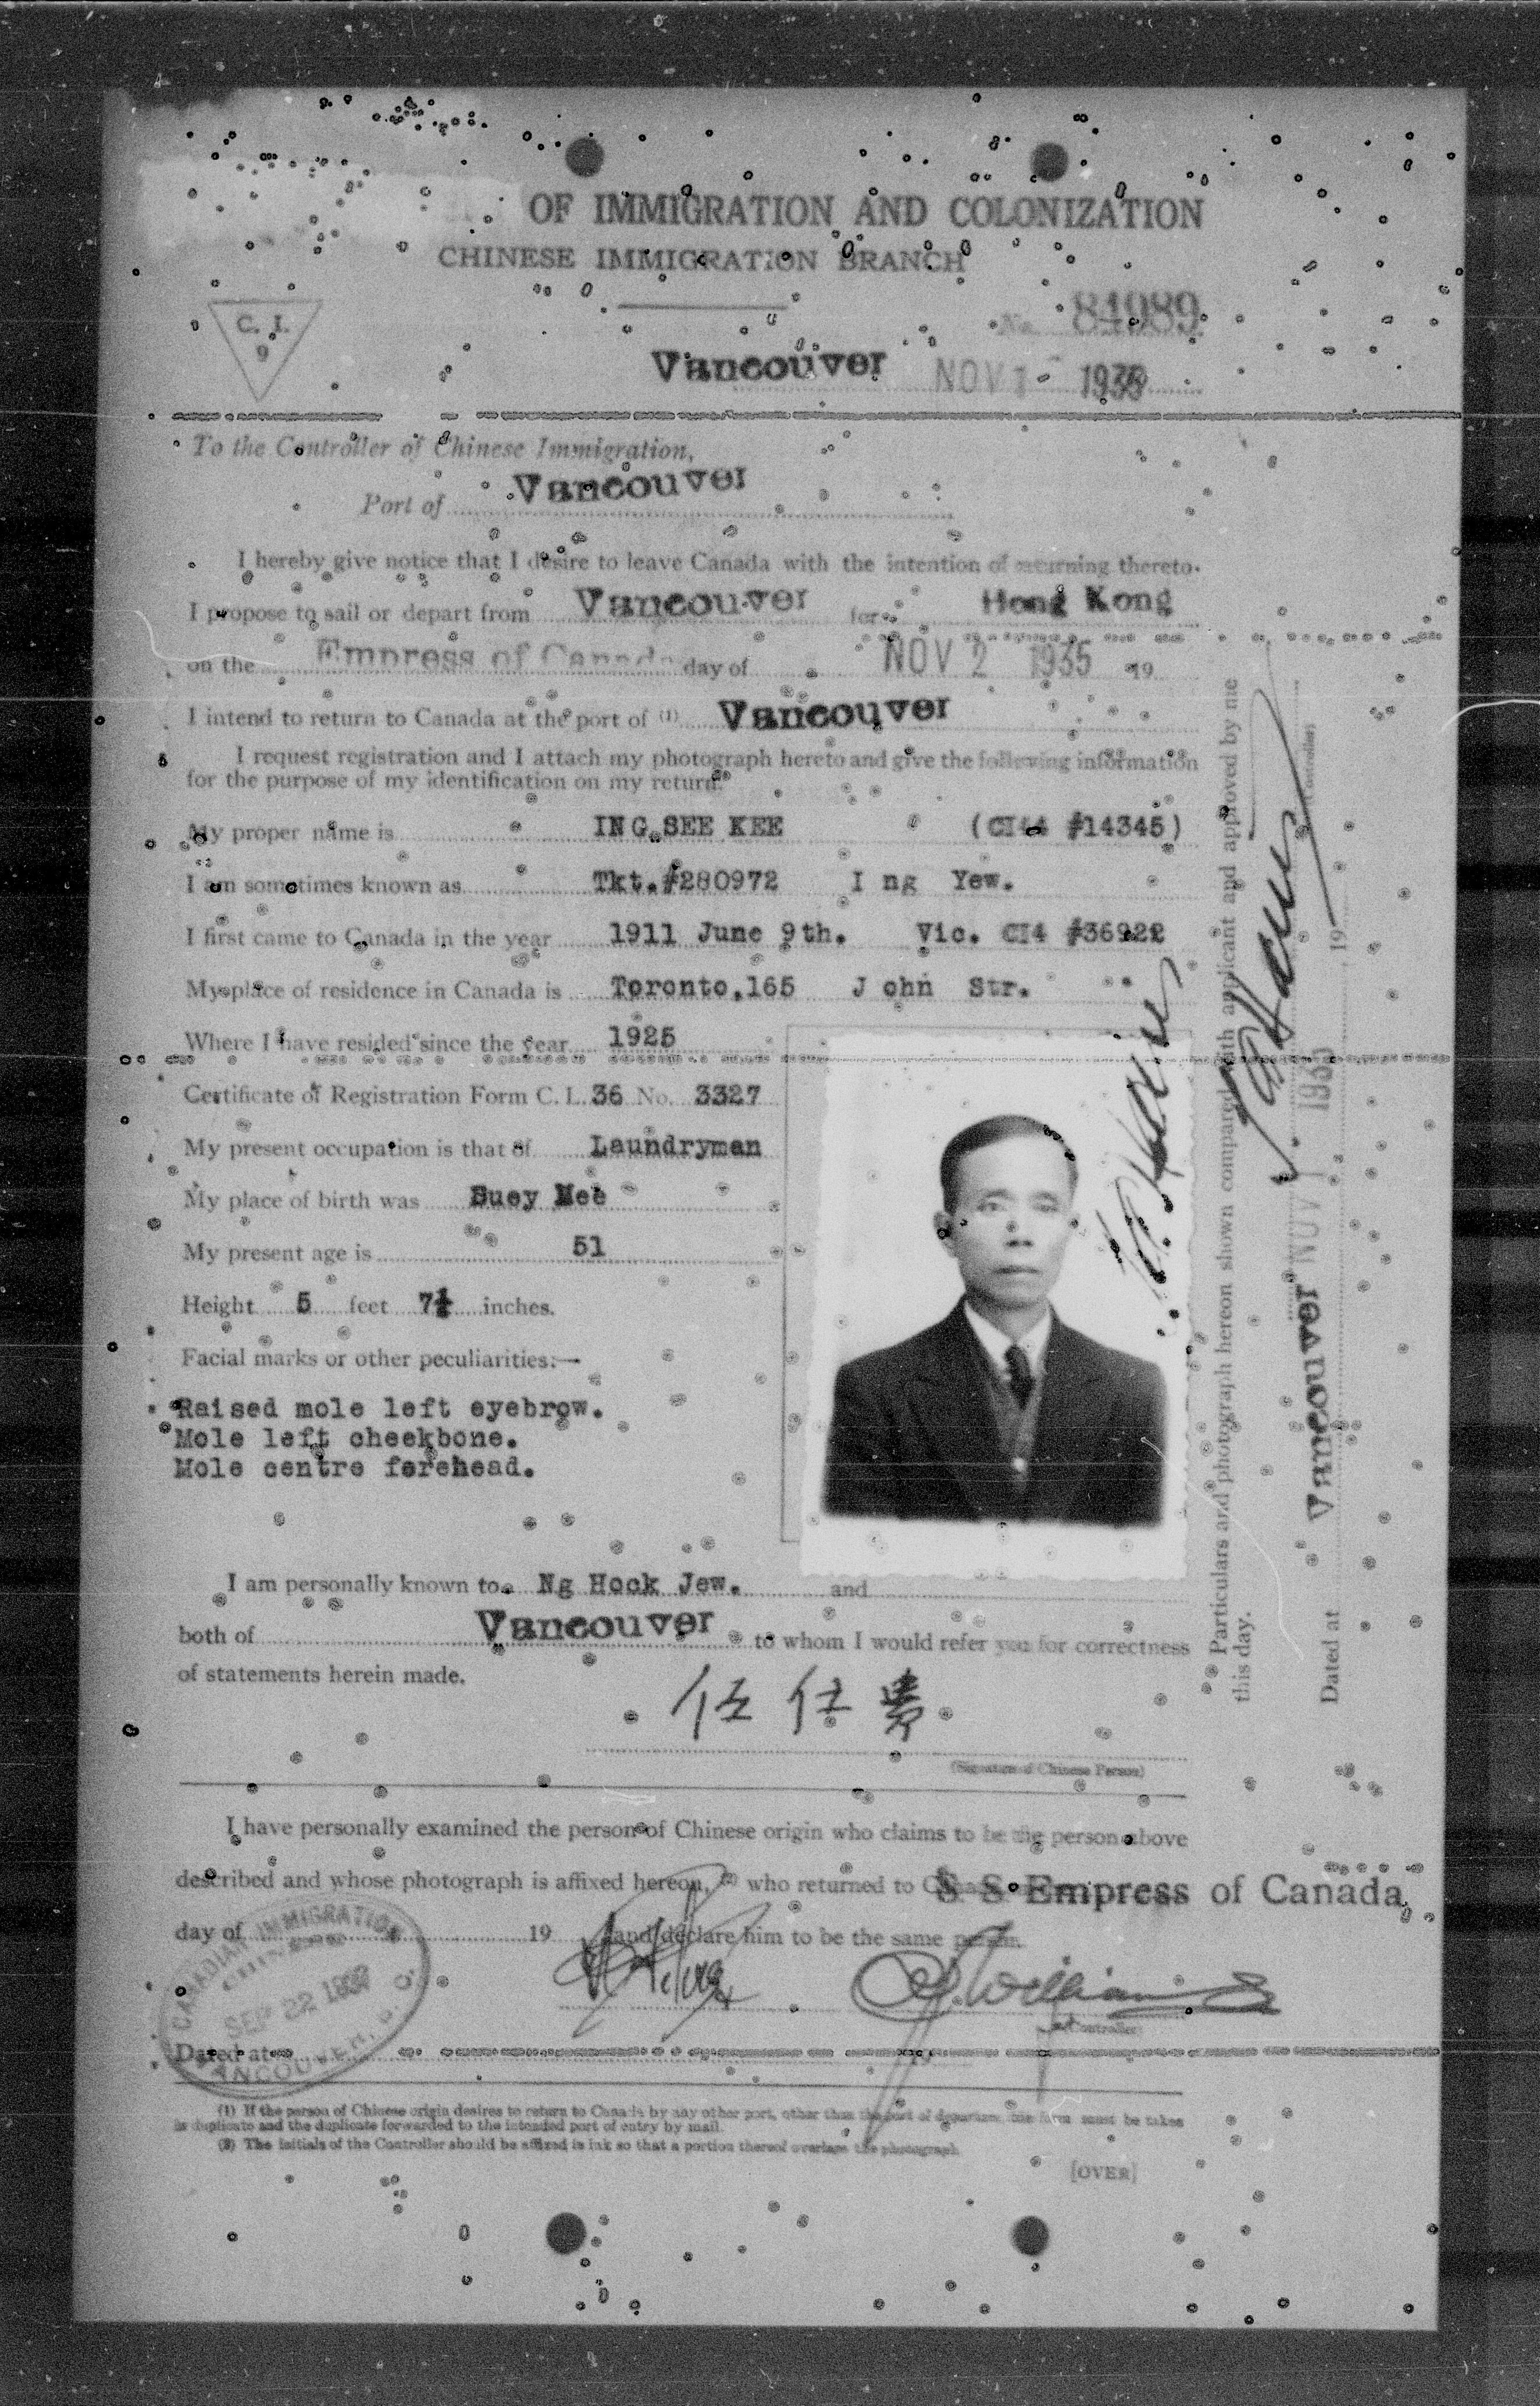 OF IMMIGRATION AND COLONIZATION
CHINESE IMMIGRATION BRANCH
C. I.
9
No. 84989
Vancouver NOV 1 - 1935
To the Controller of Chinese Immigration,
Port of Vancouver
I hereby give notice that I desire to leave Canada with the intention of returning thereto.
I propose to sail or depart from Vancouver for Hong Kong
on the Empress of Canada day of NOV 2 1935 19
I intend to return to Canada at the port of (1) Vancouver
I request registration and I attach my photograph hereto and give the following information
for the purpose of my identification on my return.
My proper name is ING SEE KEE (CI44 #14345)
I am sometimes known as Tkt.#280972 I ng Yew.
I first came to Canada in the year 1911 June 9th. Vic. CI4 #36922
My place of residence in Canada is Toronto,165 J ohn Str.
Where I have resided since the year 1925
Certificate of Registration Form C. I. 36 No. 3327
My present occupation is that of Laundryman
My place of birth was Suey Mee
My present age is 51
Height 5 feet 7½ inches.
Facial marks or other peculiarities:—
Raised mole left eyebrow.
Mole left cheekbone.
Mole centre forehead.
I am personally known to Ng Hock Jew. and
both of Vancouver to whom I would refer you for correctness
of statements herein made.
伍仕
(Signature of Chinese Person)
I have personally examined the person of Chinese origin who claims to be the person above
described and whose photograph is affixed hereon, (2) who returned to Canada S S Empress of Canada
day of 19 and declare him to be the same person.
Controller
CANADIAN IMMIGRATION
CHINESE
SEP 22 1937
VANCOUVER, B. C.
Dated at 19
(1) If the person of Chinese origin desires to return to Canada by any other port, other than the port of departure, this form must be taken
in duplicate and the duplicate forwarded to the intended port of entry by mail.
(2) The initials of the Controller should be affixed in ink so that a portion thereof overlaps the photograph.
[OVER]
Particulars and photograph hereon shown compared with applicant and approved by me
this day.
(Controller)
Dated at Vancouver NOV 1 1935 19